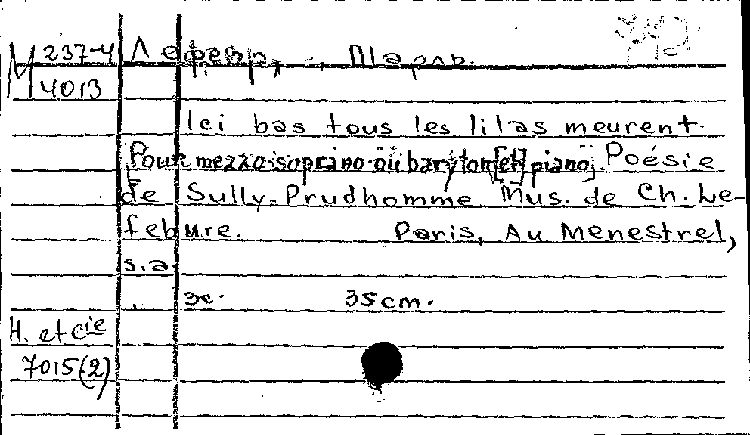 М 237-4 Лефевр, Шарль.
4013
Ici bas tous les lilas meurent.
Pour mezzo-soprano ou baryton [et] piano. Poésie
de Sully-Prudhomme Mus. de Ch. Le-
febure. Paris, Au Menestrel,
s.a.
3с. 35cm.
H. et cie
7015(2)